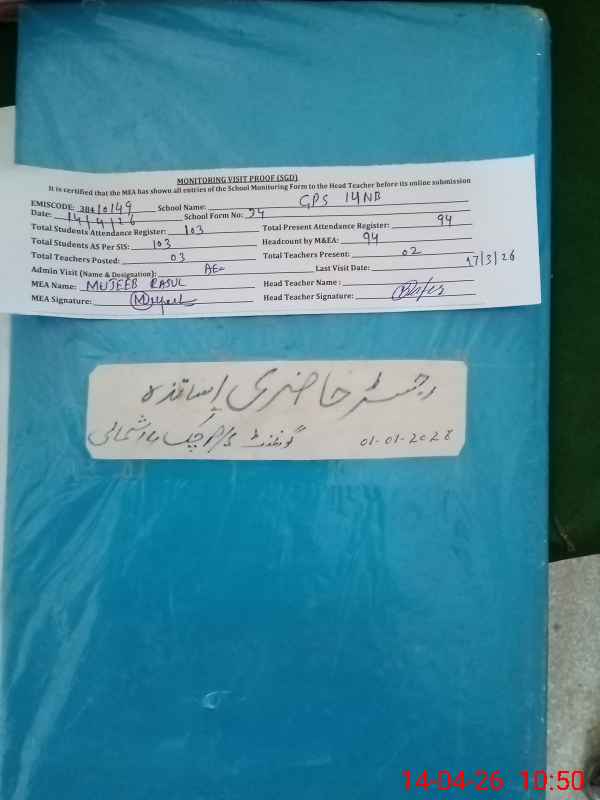 MONITORING VISIT PROOF (SGD)
It is certified that the MEA has shown all entries of the School Monitoring Form to the Head Teacher before its online submission
EMISCODE: 38410149 School Name: GPS 14NB
Date: 14/4/26 School Form No:
Total Students Attendance Register: 103 Total Present Attendance Register: 94
Total Students AS Per SIS: 103 Headcount by M&EA: 94
Total Teachers Posted: 03 Total Teachers Present: 02
Admin Visit (Name & Designation): Last Visit Date: 27/3/26
MEA Name: MUJEEB RASUL Head Teacher Name :
MEA Signature: Head Teacher Signature:
رجسٹر حاضری اساتذہ
گورنمنٹ چک شمالی 01-01-2028
14-04-26 10:50